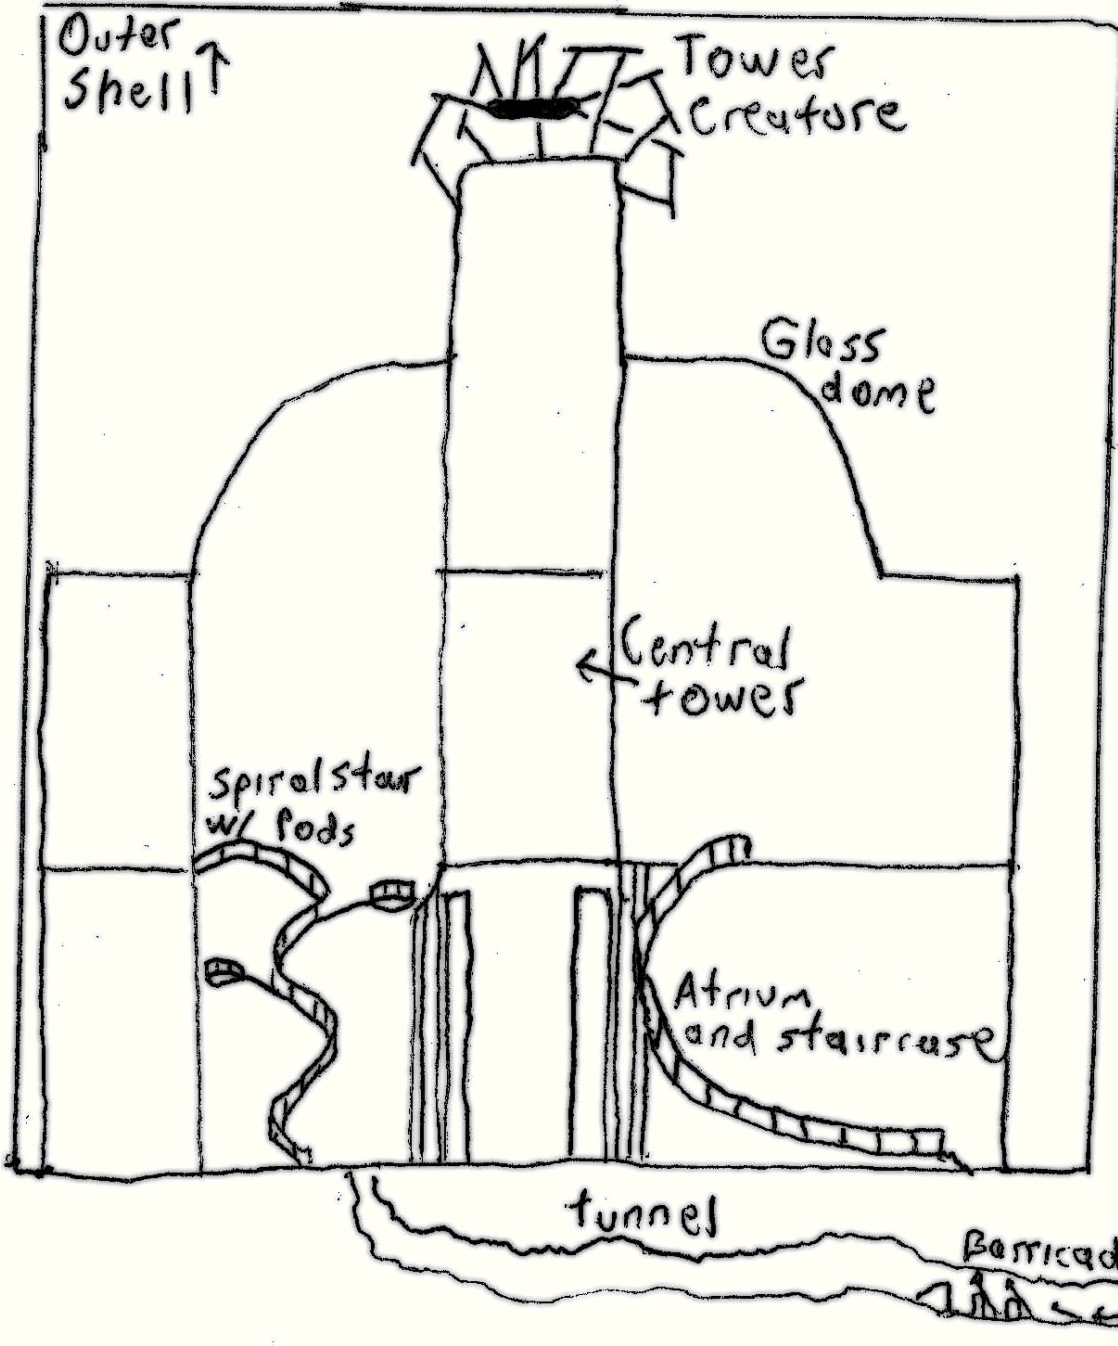 Outer
Shell
Tower
Creature
Glass
dome
Central
tower
spiral stair
w/ Pods
Atrium
and staircase
tunnel
Barricad